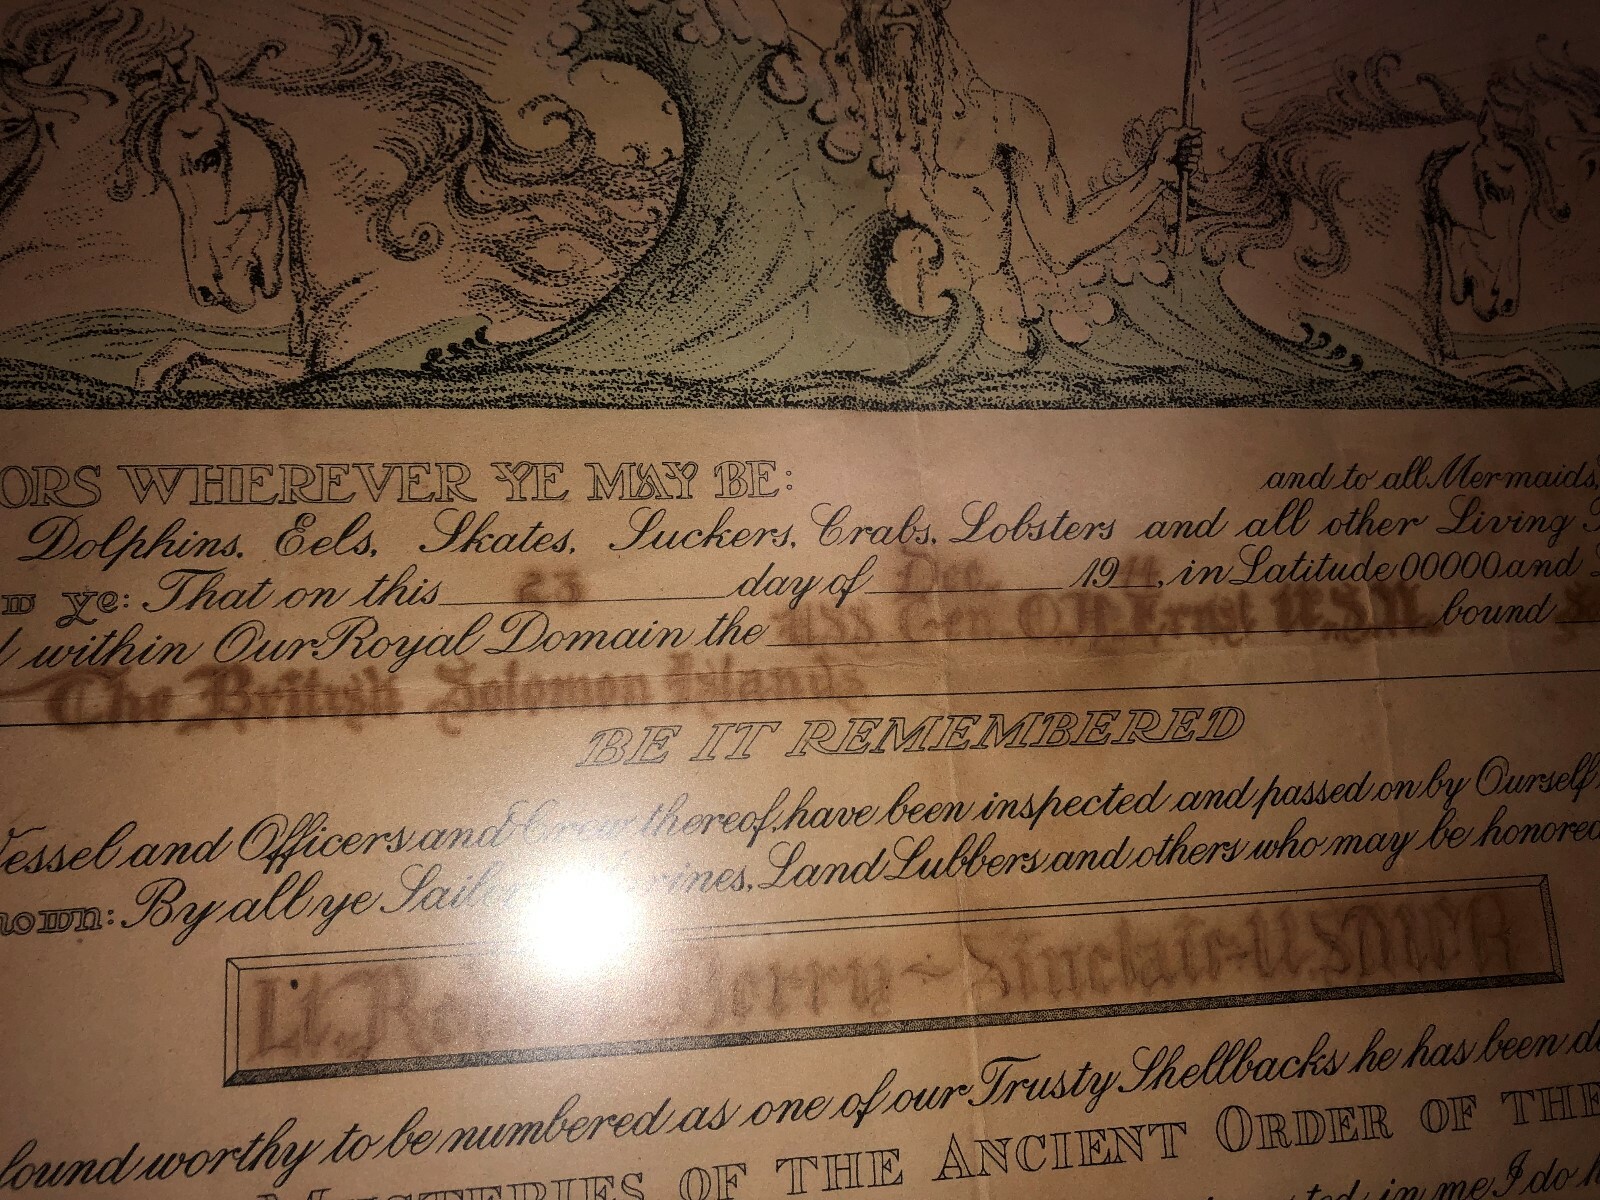 ORS WHEREVER YE MAY BE: and to all Mermaids,
Dolphins, Eels, Skates, Suckers, Crabs, Lobsters and all other Living
ye: That on this 23 day of Dec. 19 , in Latitude 00000 and
within Our Royal Domain the USS Gen O.H. Ernst U.S.N. bound
The British Solomon Islands
BE IT REMEMBERED
Vessel and Officers and Crew thereof, have been inspected and passed on by Ourself
nown: By all ye Sailor rines, Land Lubbers and others who may be honored
Lt. Ro Berry ~ Sinclair - U.S.M.C.R
found worthy to be numbered as one of our Trusty Shellbacks he has been d
MYSTERIES OF THE ANCIENT ORDER OF THE
ted in me I do h